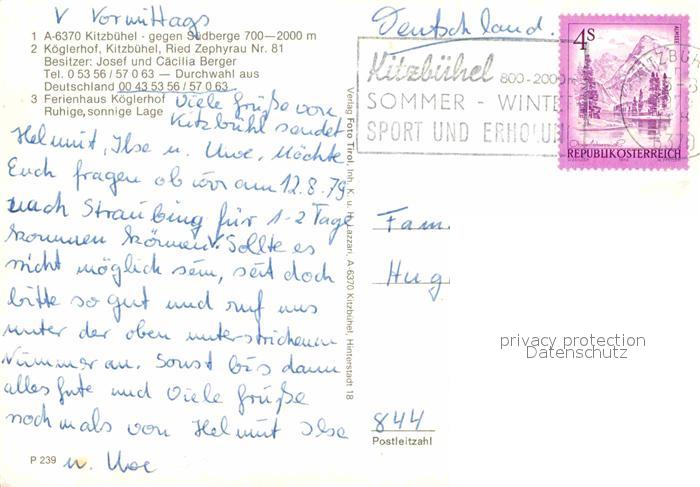 V Vormittags
1 A-6370 Kitzbühel - gegen Südberge 700—2000 m
2 Köglerhof, Kitzbühel, Ried Zephyrau Nr. 81
Besitzer: Josef und Cäcilia Berger
Tel. 0 53 56 / 57 0 63 — Durchwahl aus
Deutschland 00 43 53 56 / 57 0 63
3 Ferienhaus Köglerhof
Ruhige, sonnige Lage
Viele Grüße von
Kitzbühl sendet
Helmut, Ilse u. Uwe, Möchte
Euch fragen ob wir am 12.8.79
nach Straubing für 1-2 Tage
kommen können V. Sollte es
nicht möglich sein, seit doch
bitte so gut und ruf uns
unter der oben unterstrichenen
Nummer an. Sonst bis dann
alles Gute und Viele Grüße
nochmals von Helmut Ilse
u. Uwe
P 239
Verlag Foto Tirol, Inh. K. u. H. Lazzari, A-6370 Kitzbühel, Hinterstadt 18
Deutschland.
Kitzbühel 800-2000m
SOMMER - WINTER
SPORT UND ERHOLUN
4S
ALMSEE
REPUBLIK ÖSTERREICH
KITZBÜH
6370
Fam.
Hug
privacy protection
Datenschutz
844
Postleitzahl